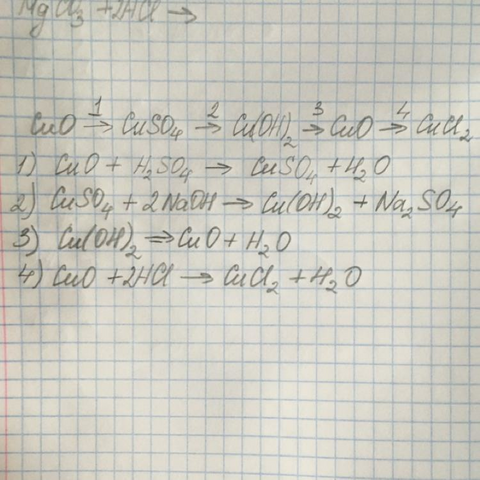 MgCl₃ + 2HCl →
CuO →¹ CuSO₄ →² Cu(OH)₂ →³ CuO →⁴ CuCl₂
1) CuO + H₂SO₄ → CuSO₄ + H₂O
2) CuSO₄ + 2NaOH → Cu(OH)₂ + Na₂SO₄
3) Cu(OH)₂ ⇒ CuO + H₂O
4) CuO + 2HCl → CuCl₂ + H₂O